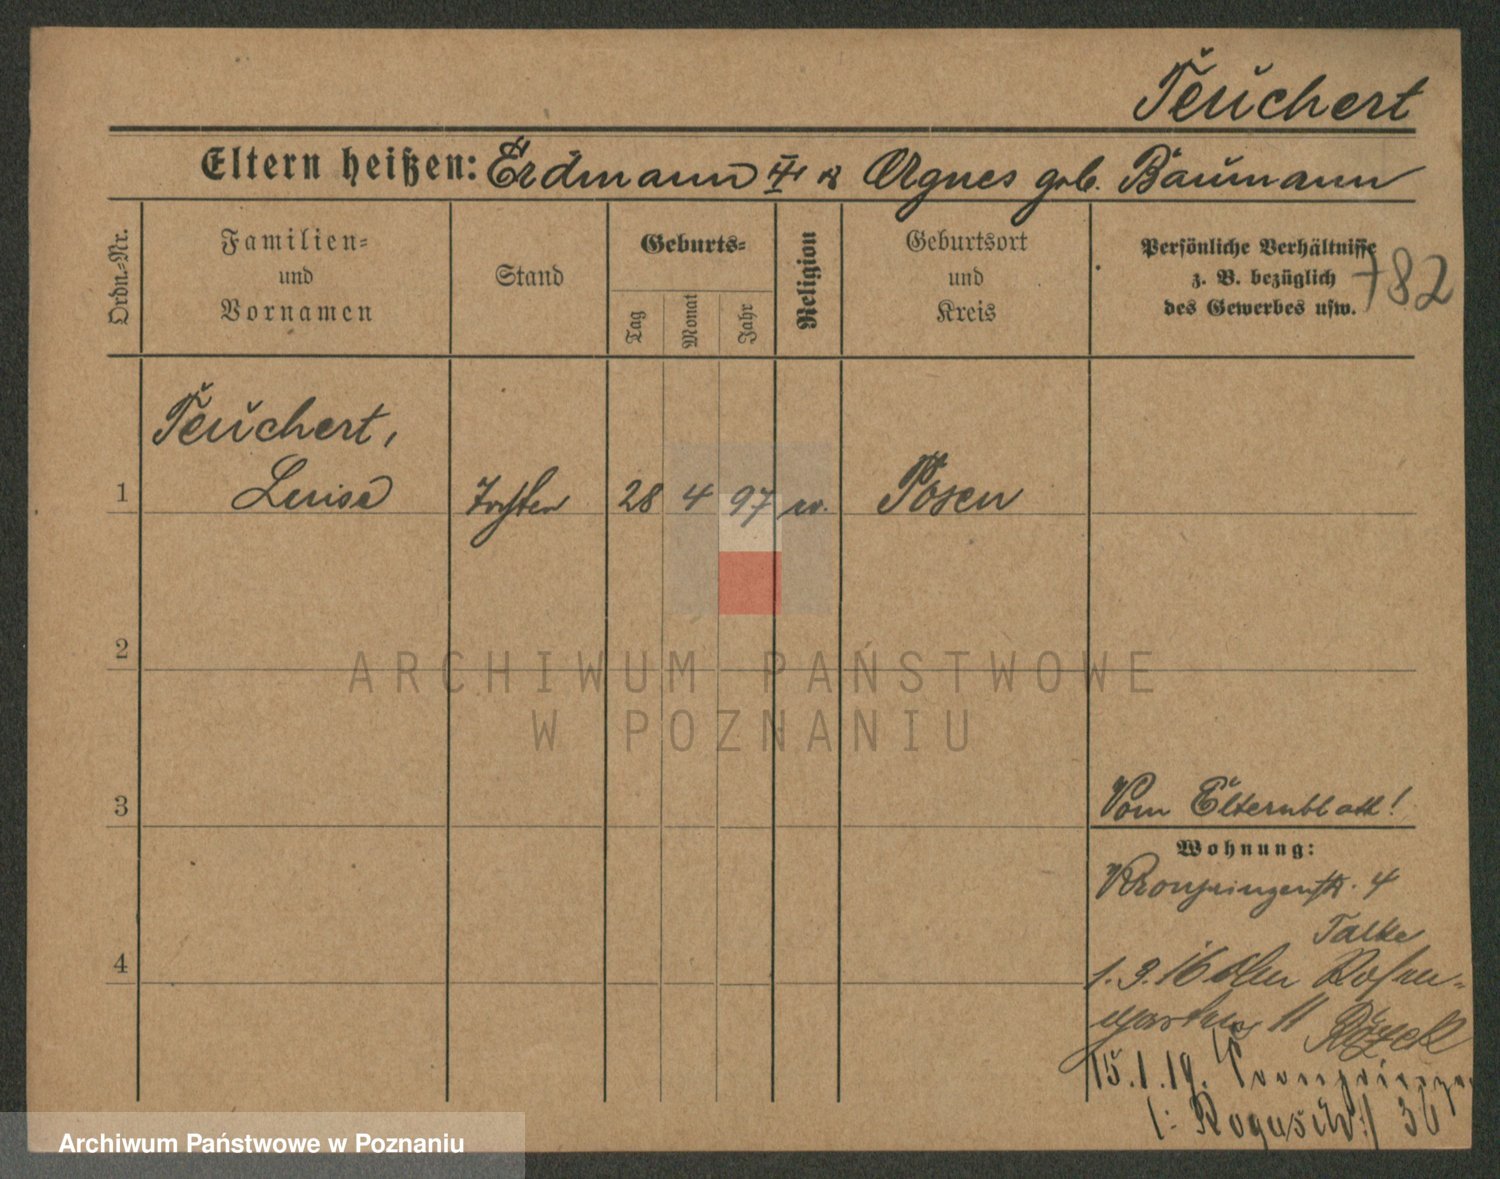 Teuchert
Eltern heißen: Erdmann III u Agnes geb. Baumann
Ordn.-Nr.
Familien-
und
Vornamen
Stand
Geburts-
Tag
Monat
Jahr
Religion
Geburtsort
und
Kreis
Persönliche Verhältnisse
z. B. bezüglich
des Gewerbes usw.
782
Teuchert,
1 Luise Tochter 28 4 97 ev. Posen
2
ARCHIWUM PAŃSTWOWE
W POZNANIU
3
Vom Elternblatt!
Wohnung:
Kronprinzenstr. 4
4
Talke
1. 9. 16
11
15. 1. 19.
36
Archiwum Państwowe w Poznaniu